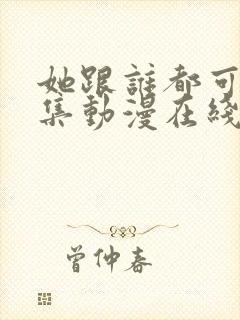 她跟誰都可
集動漫在綫
曾仲春